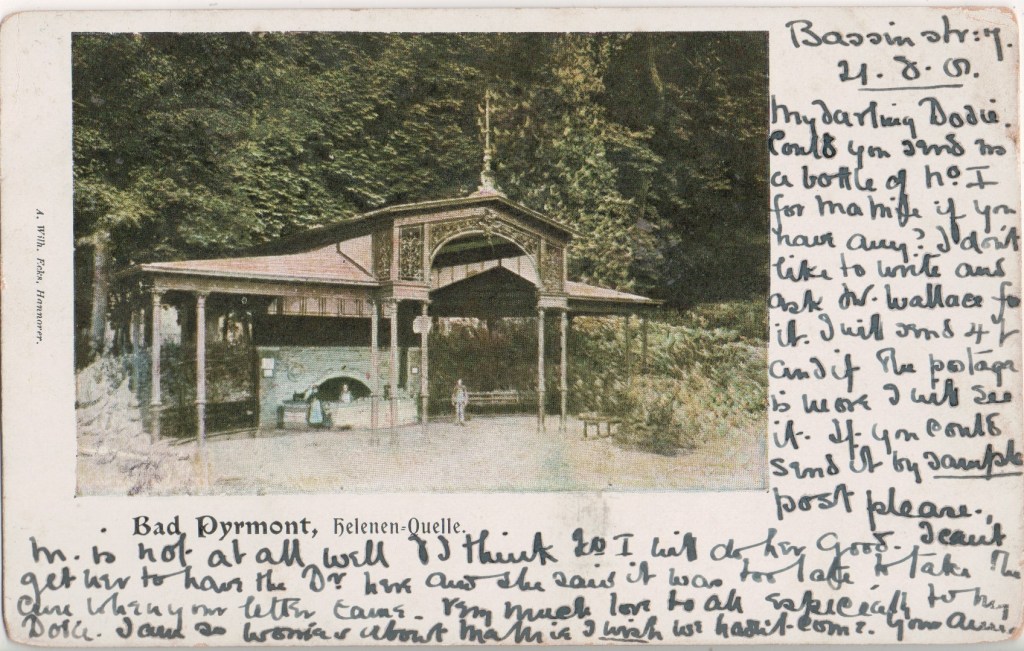 Bassinstr: 7.
21.8.01.
My darling Dodie.
Could you send us
a bottle of No I
for Mamie if you
have any? I don't
like to write and
ask Dr. Wallace for
it. I will send 4/
and if the postage
is more I will see
it. If you could
send it by sample
post please.,
M. is not at all well & I think No I will do her good. I cant
get her to have the Dr here and she said it was too late to take the
cure when your letter came. Very much love to all especially to my
Dodie. I am so worried about Mamie I wish we hadn't come. Your
Bad Pyrmont, Helenen=Quelle.
A. Wilh. Ecks, Hannover.